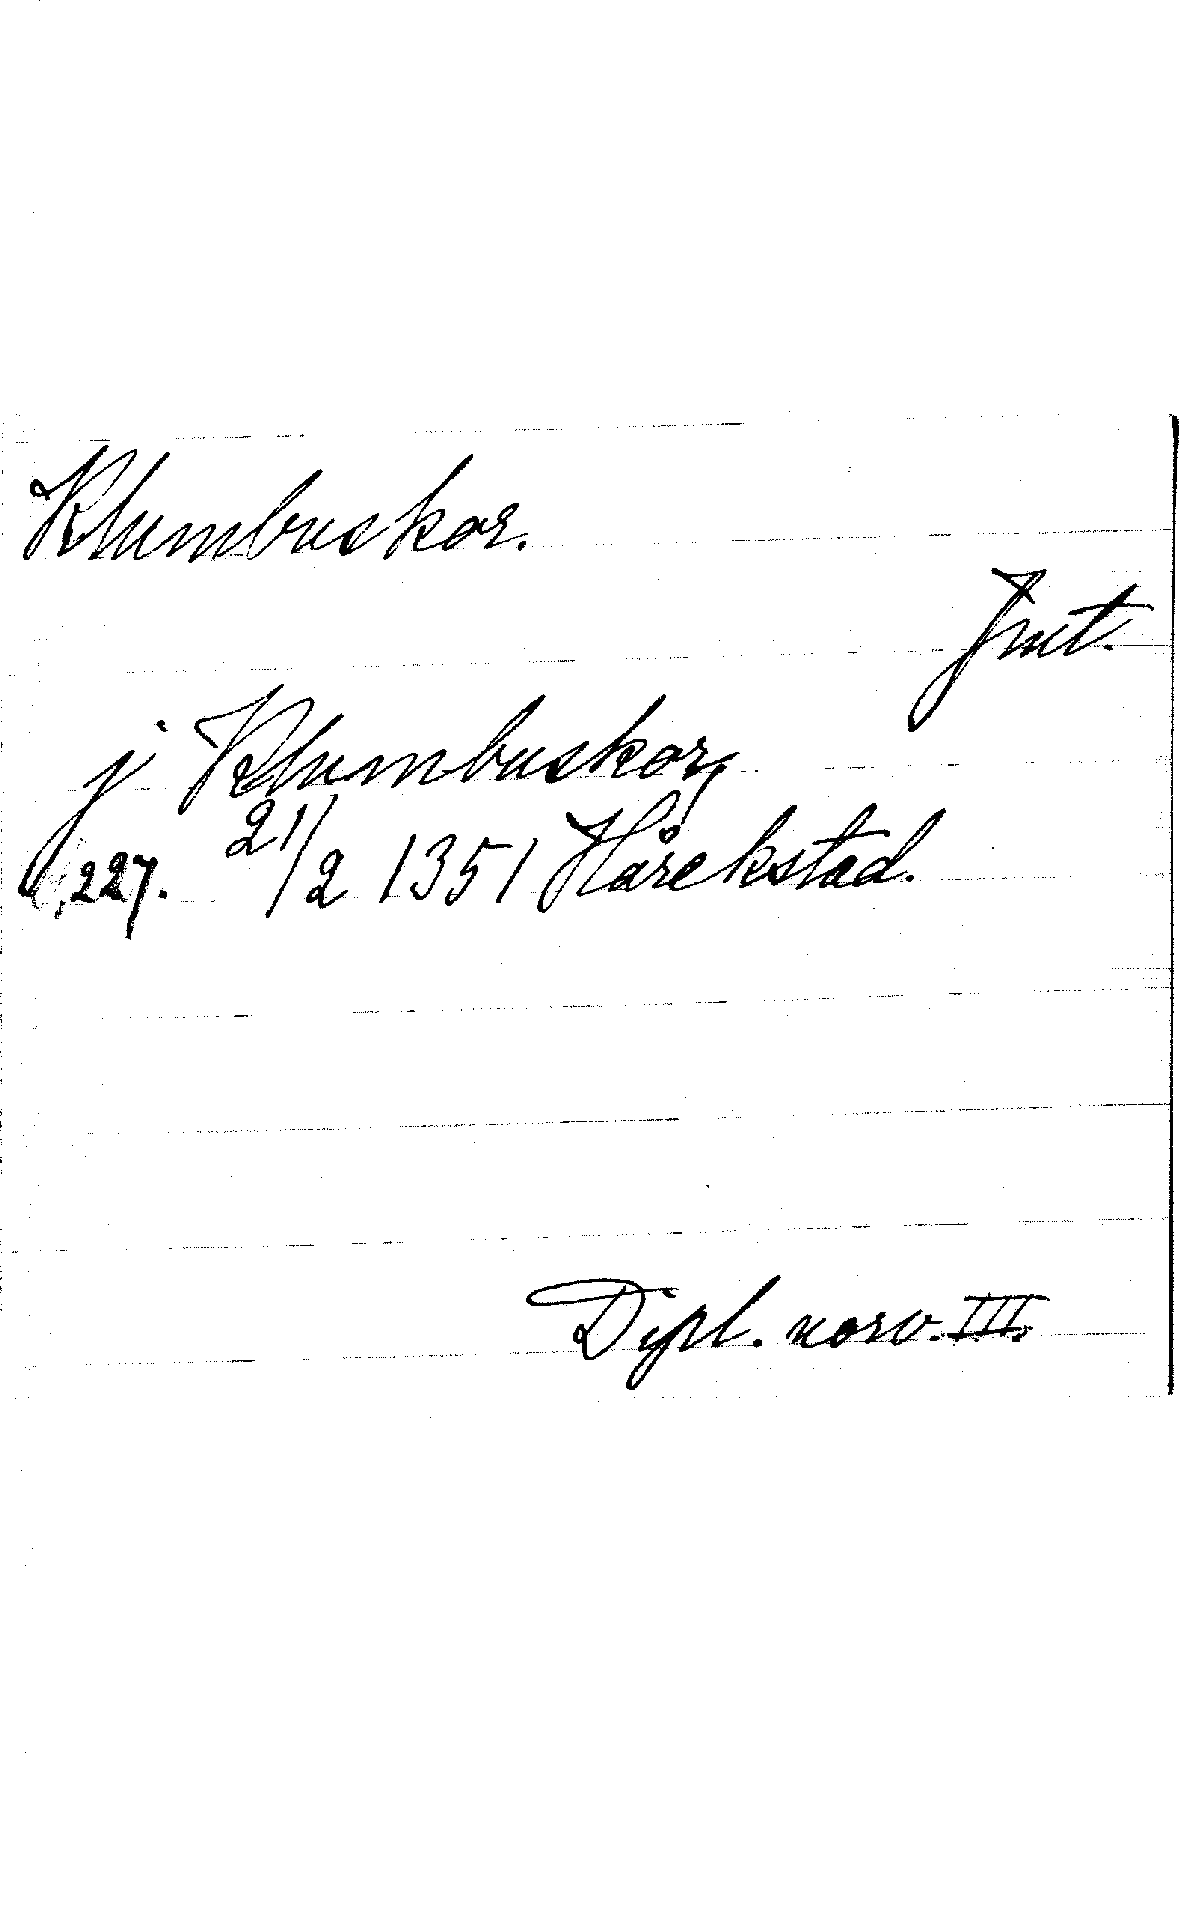 Klumbuskor.
Jmt.
j Klumbuskor,
227. 21/2 1351 Hårekstad.
Dipl. norv. III.